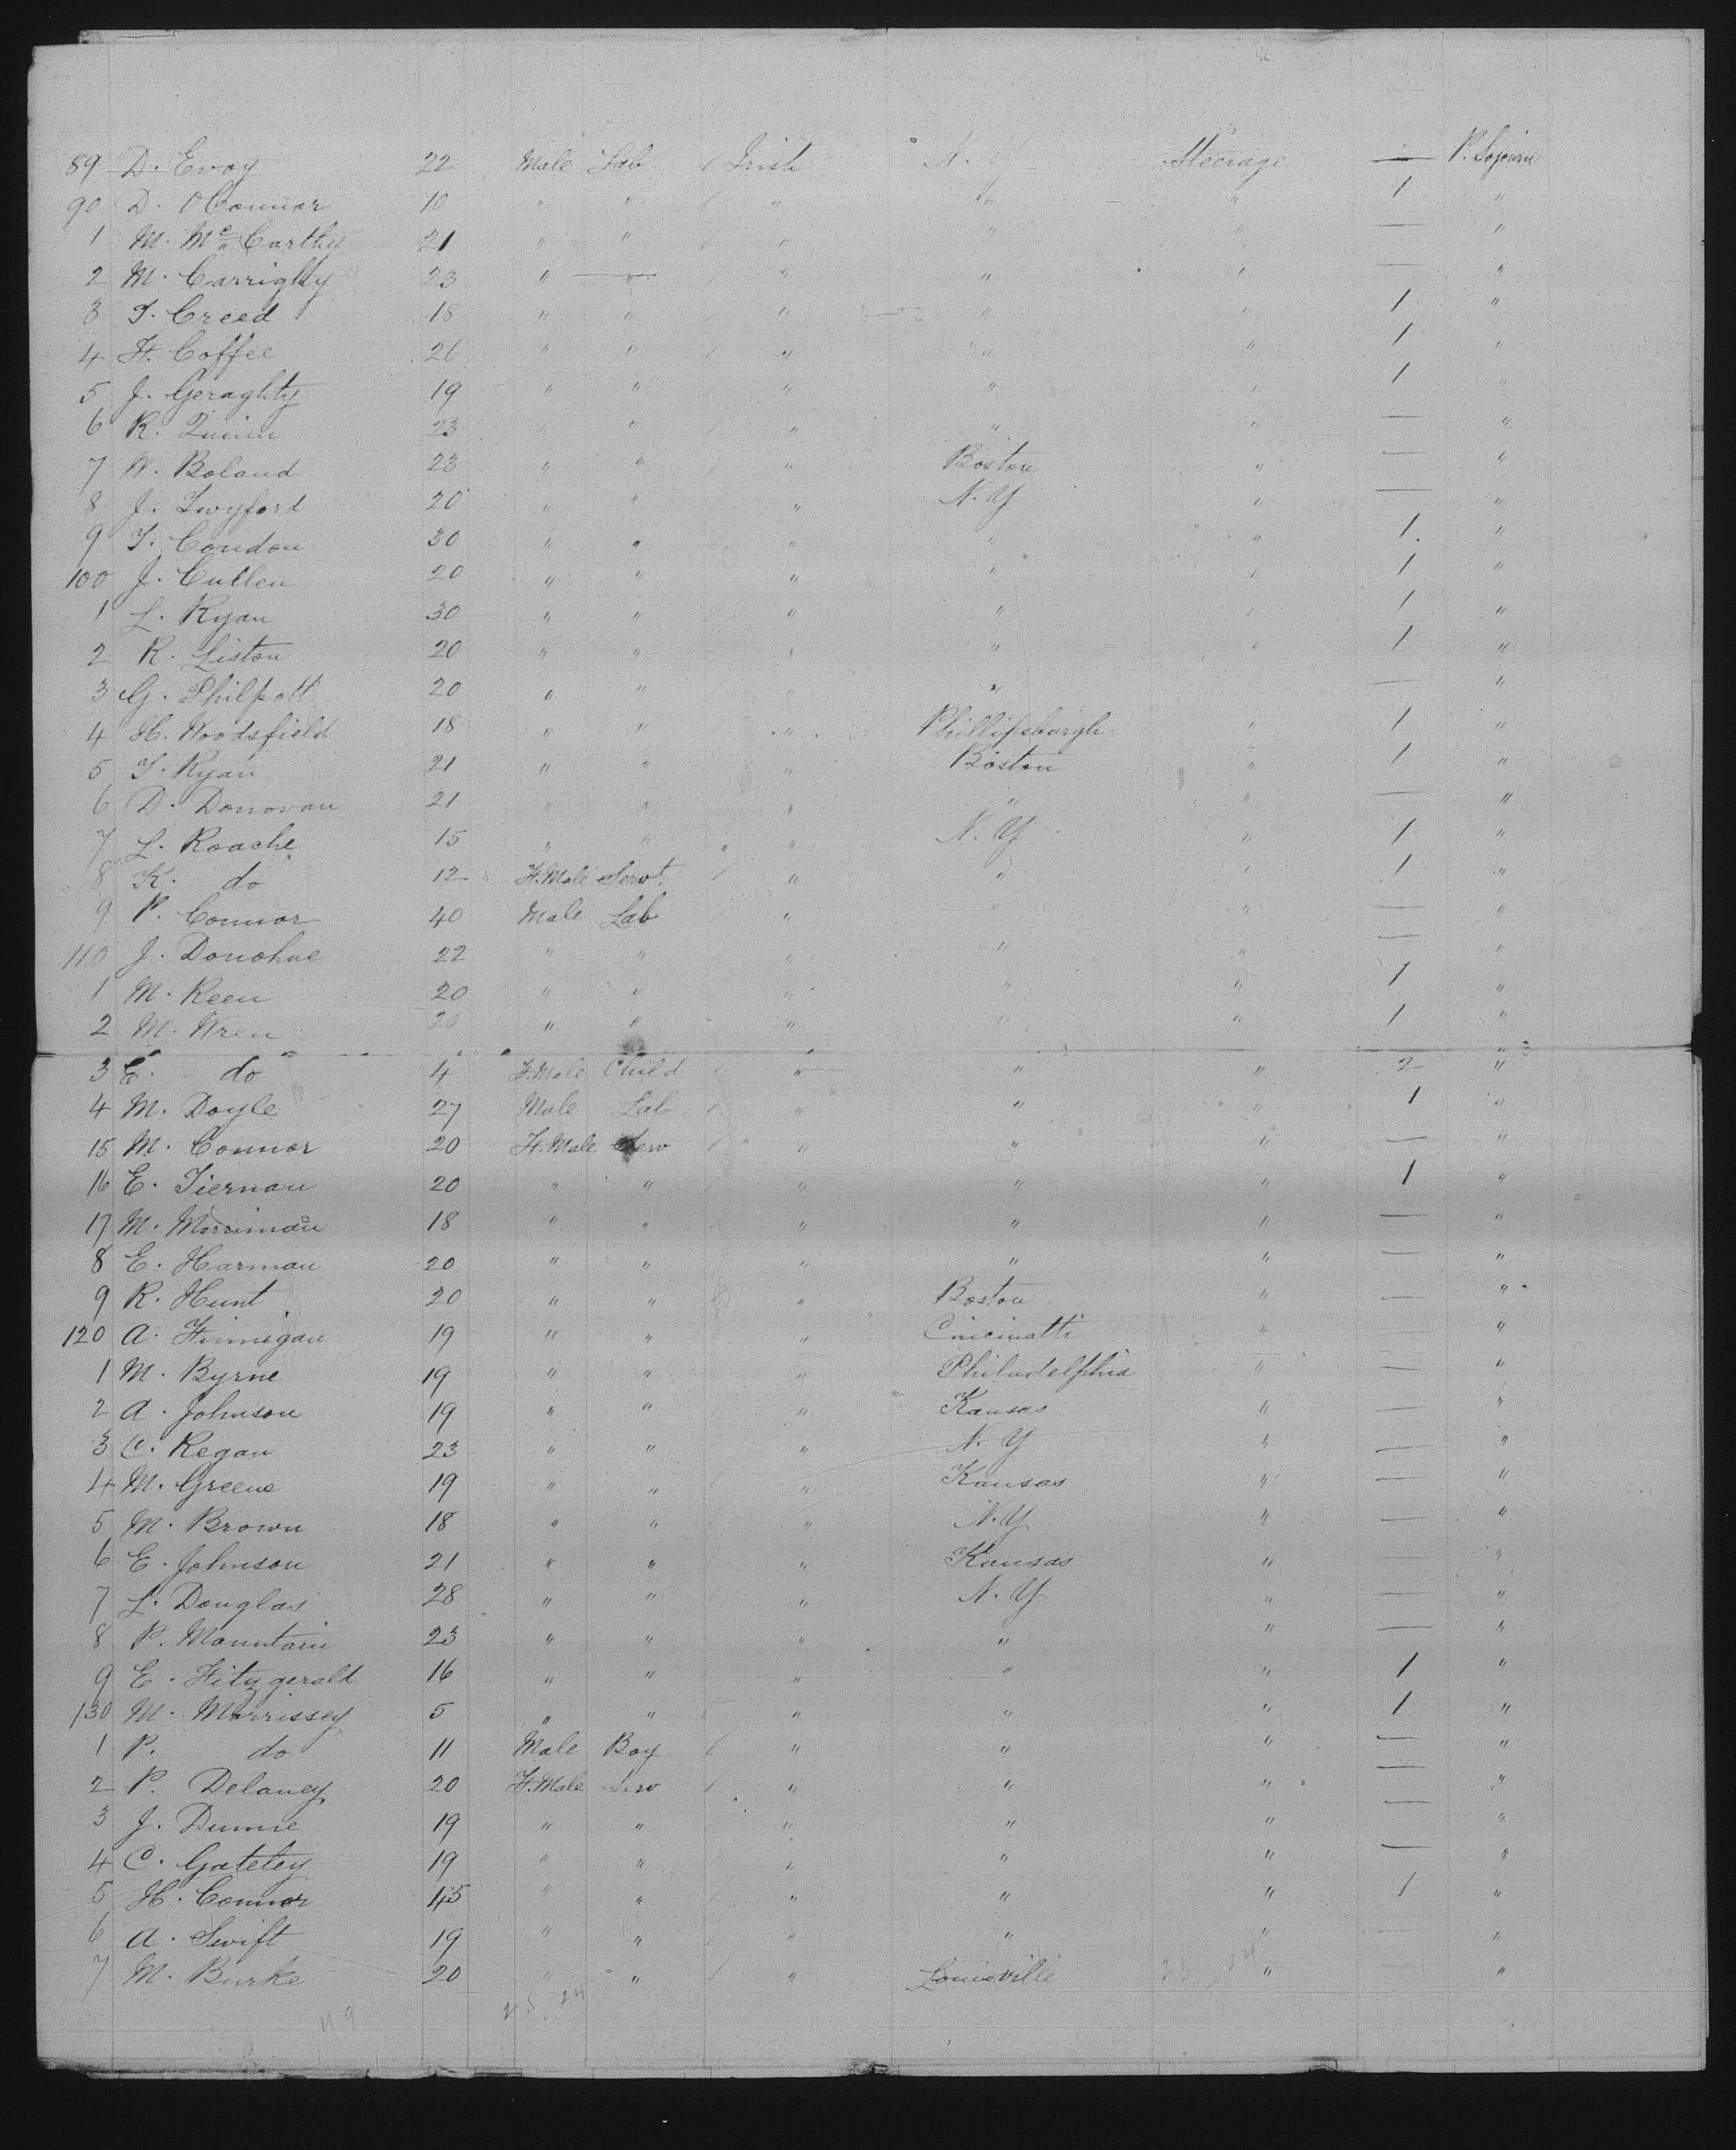 89 D. Evoy 22 Male Lab / Irish N. Y Steerage — P. Sojourn
90 D. OConnor 10 " " / " " " 1 "
1 M. McCarthy 21 " " / " " " — "
2 M. Carrighty 23 " " " " " — "
3 T. Creed 18 " " " " " 1 "
4 H. Coffee 26 " " / " " " 1 "
5 J. Geraghty 19 " " " " " 1 "
6 R. Quinn 23 " " / " " " — "
7 W. Boland 23 " " / " Boston " — "
8 J. Twyford 20 " " " N. Y " — "
9 T. Condon 30 " " " " " 1 "
100 J. Cullen 20 " " " " " 1 "
1 L. Ryan 30 " " " " " 1 "
2 R. Liston 20 " " " " " 1 "
3 G. Philpott 20 " " " " " — "
4 H. Woodsfield 18 " " " Phillipsburgh " 1 "
5 T. Ryan 21 " " " Boston " 1 "
6 D. Donovan 21 " " " " " — "
7 L. Roache 15 " " " N. Y " 1 "
8 K. do 12 F.Male Servt. / " " " 1 "
9 P. Connor 40 Male Lab " " " — "
110 J. Donohue 22 " " " " " — "
1 M. Keen 20 " " " " " 1 "
2 M. Wren 20 " " " " " 1 "
3 E. do 4 F.Male Child / " " " 2 "
4 M. Doyle 27 Male Lab / " " " 1 "
15 M. Connor 20 F.Male Serv / " " " — "
16 E. Tiernan 20 " " " " " 1 "
17 M. Morriman 18 " " " " " — "
8 E. Harman 20 " " " " " — "
9 R. Hunt 20 " " " Boston " — "
120 A. Finnigan 19 " " " Cincinatti " — "
1 M. Byrne 19 " " " Philadelphia " — "
2 A. Johnson 19 " " " Kansas " — "
3 C. Regan 23 " " " N. Y " — "
4 M. Greene 19 " " " Kansas " — "
5 M. Brown 18 " " " N.Y " — "
6 E. Johnson 21 " " " Kansas " "
7 L. Douglas 28 " " " N. Y " — "
8 P. Mountain 23 " " " " " — "
9 E. Fitzgerald 16 " " " " " 1 "
130 M. Morrissey 5 " " " " " 1 "
1 P. do 11 Male Boy / " " " — "
2 P. Delaney 20 F.Male Serv / " " " — "
3 J. Dunne 19 " " " " " — "
4 C. Gateley 19 " " " " " — "
5 H. Connor 45 " " " " " 1 "
6 A. Swift 19 " " / " " " — "
7 M. Burke 20 " " / " Louisville 25 24 " — "
119 25 24